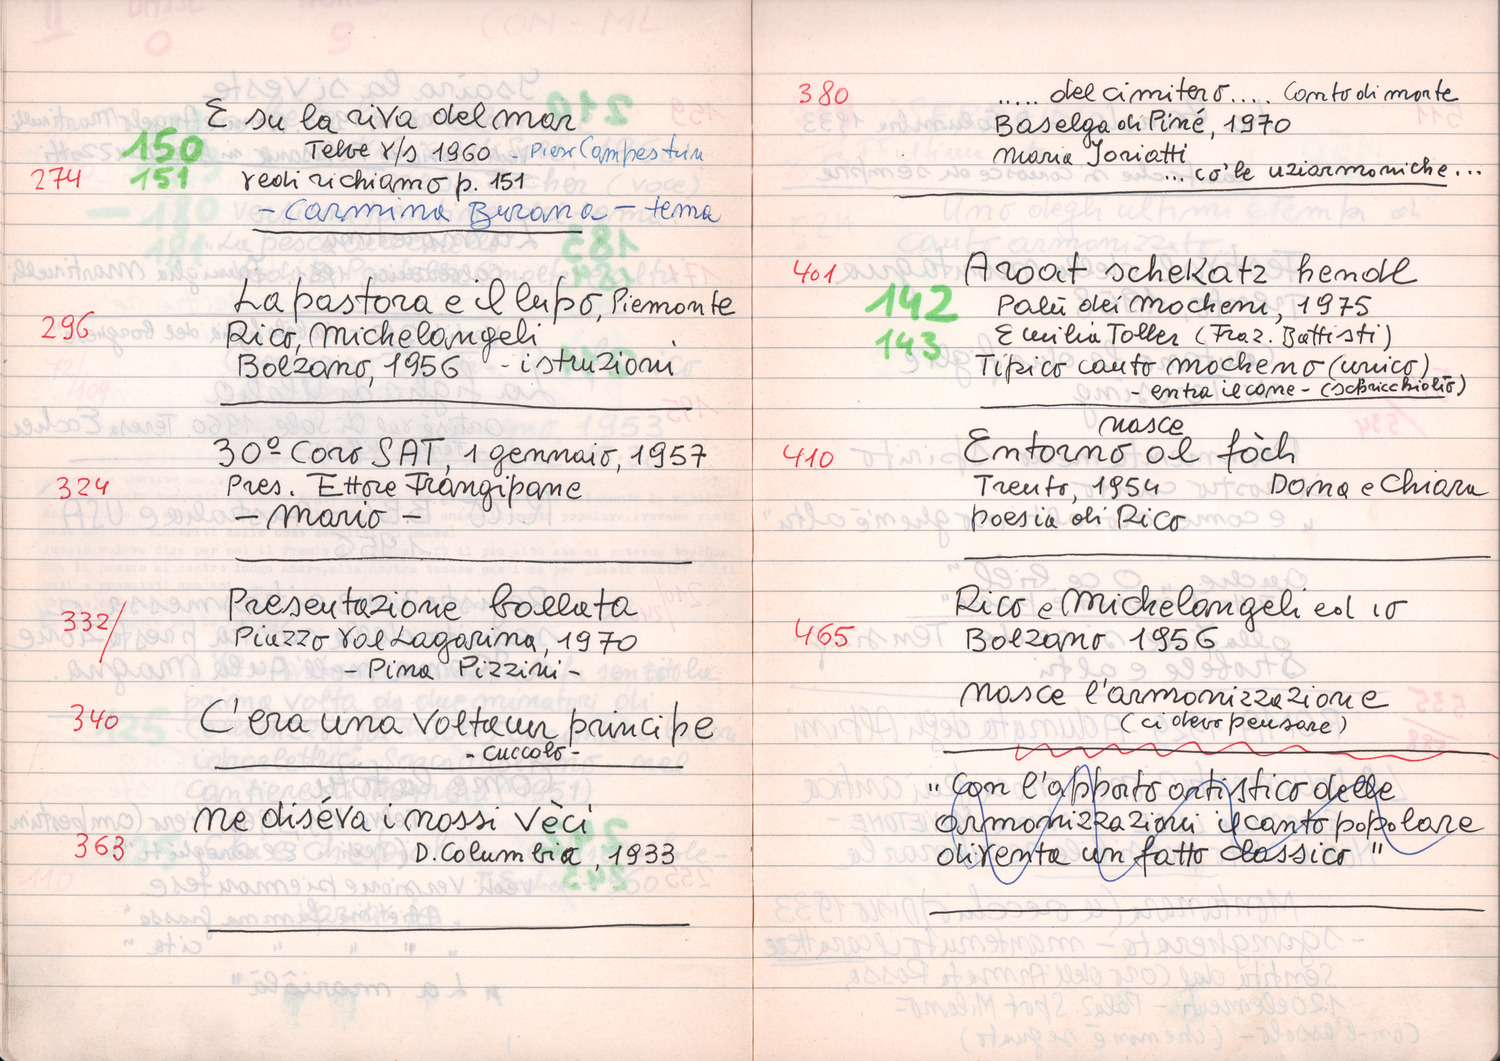 E su la riva del mar
150 Telve V/S 1960 - Pier Campestrin
274 151 vedi richiamo p. 151
- Carmina Burana - tema
La pastora e il lupo, Piemonte
296 Rico, Michelangeli
Bolzano, 1956 - istruzioni
30º Coro SAT, 1 gennaio, 1957
324 Pres. Ettore Frangipane
- Mario -
Presentazione ballata
332/ Piazzo Val Lagarina, 1970
- Pina Pizzini -
340 C'era una volta un principe
- cuccolo -
Ne diséva i nossi vèci
363 D. Columbia, 1933
380 ..... del cimitero ..... Canto di morte
Baselga di Piné, 1970
Maria Ioriatti
... co' le uziarmoniche ...
401 Aroat schekatz hendl
142 Palù dei Mocheni, 1975
143 Emilia Toller (Fraz. Battisti)
Tipico canto mocheno (unico)
- entra il cane - (scbricchiolio)
nasce
410 Entorno al fòch
Trento, 1954 Doma e Chiara
poesia di Rico
Rico e Michelangeli ed io
465 Bolzano 1956
Nasce l'armonizzazione
(ci devo pensare)
"Con l'apporto artistico delle
armonizzazioni il canto popolare
diventa un fatto classico"